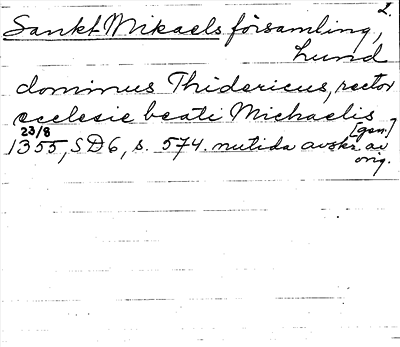 2.
Sankt Mikaels församling,
Lund
dominus Thidericus, rector
ecclesie beati Michaelis
[gen.]
23/8
1355, SD6, s. 574. nutida avskr. av
orig.